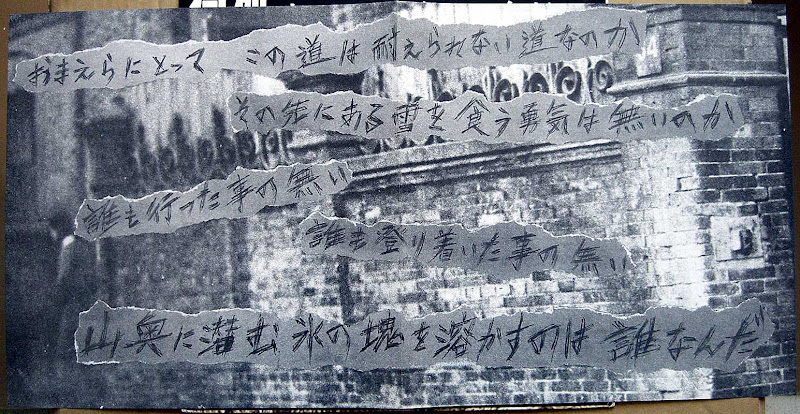 おまえらにとって この道は耐えられない道なのか
その先にある雪を食う勇気は無いのか
誰も行った事の無い
誰も登り着いた事の無い
山奥に潜む氷の塊を溶かすのは 誰なんだ